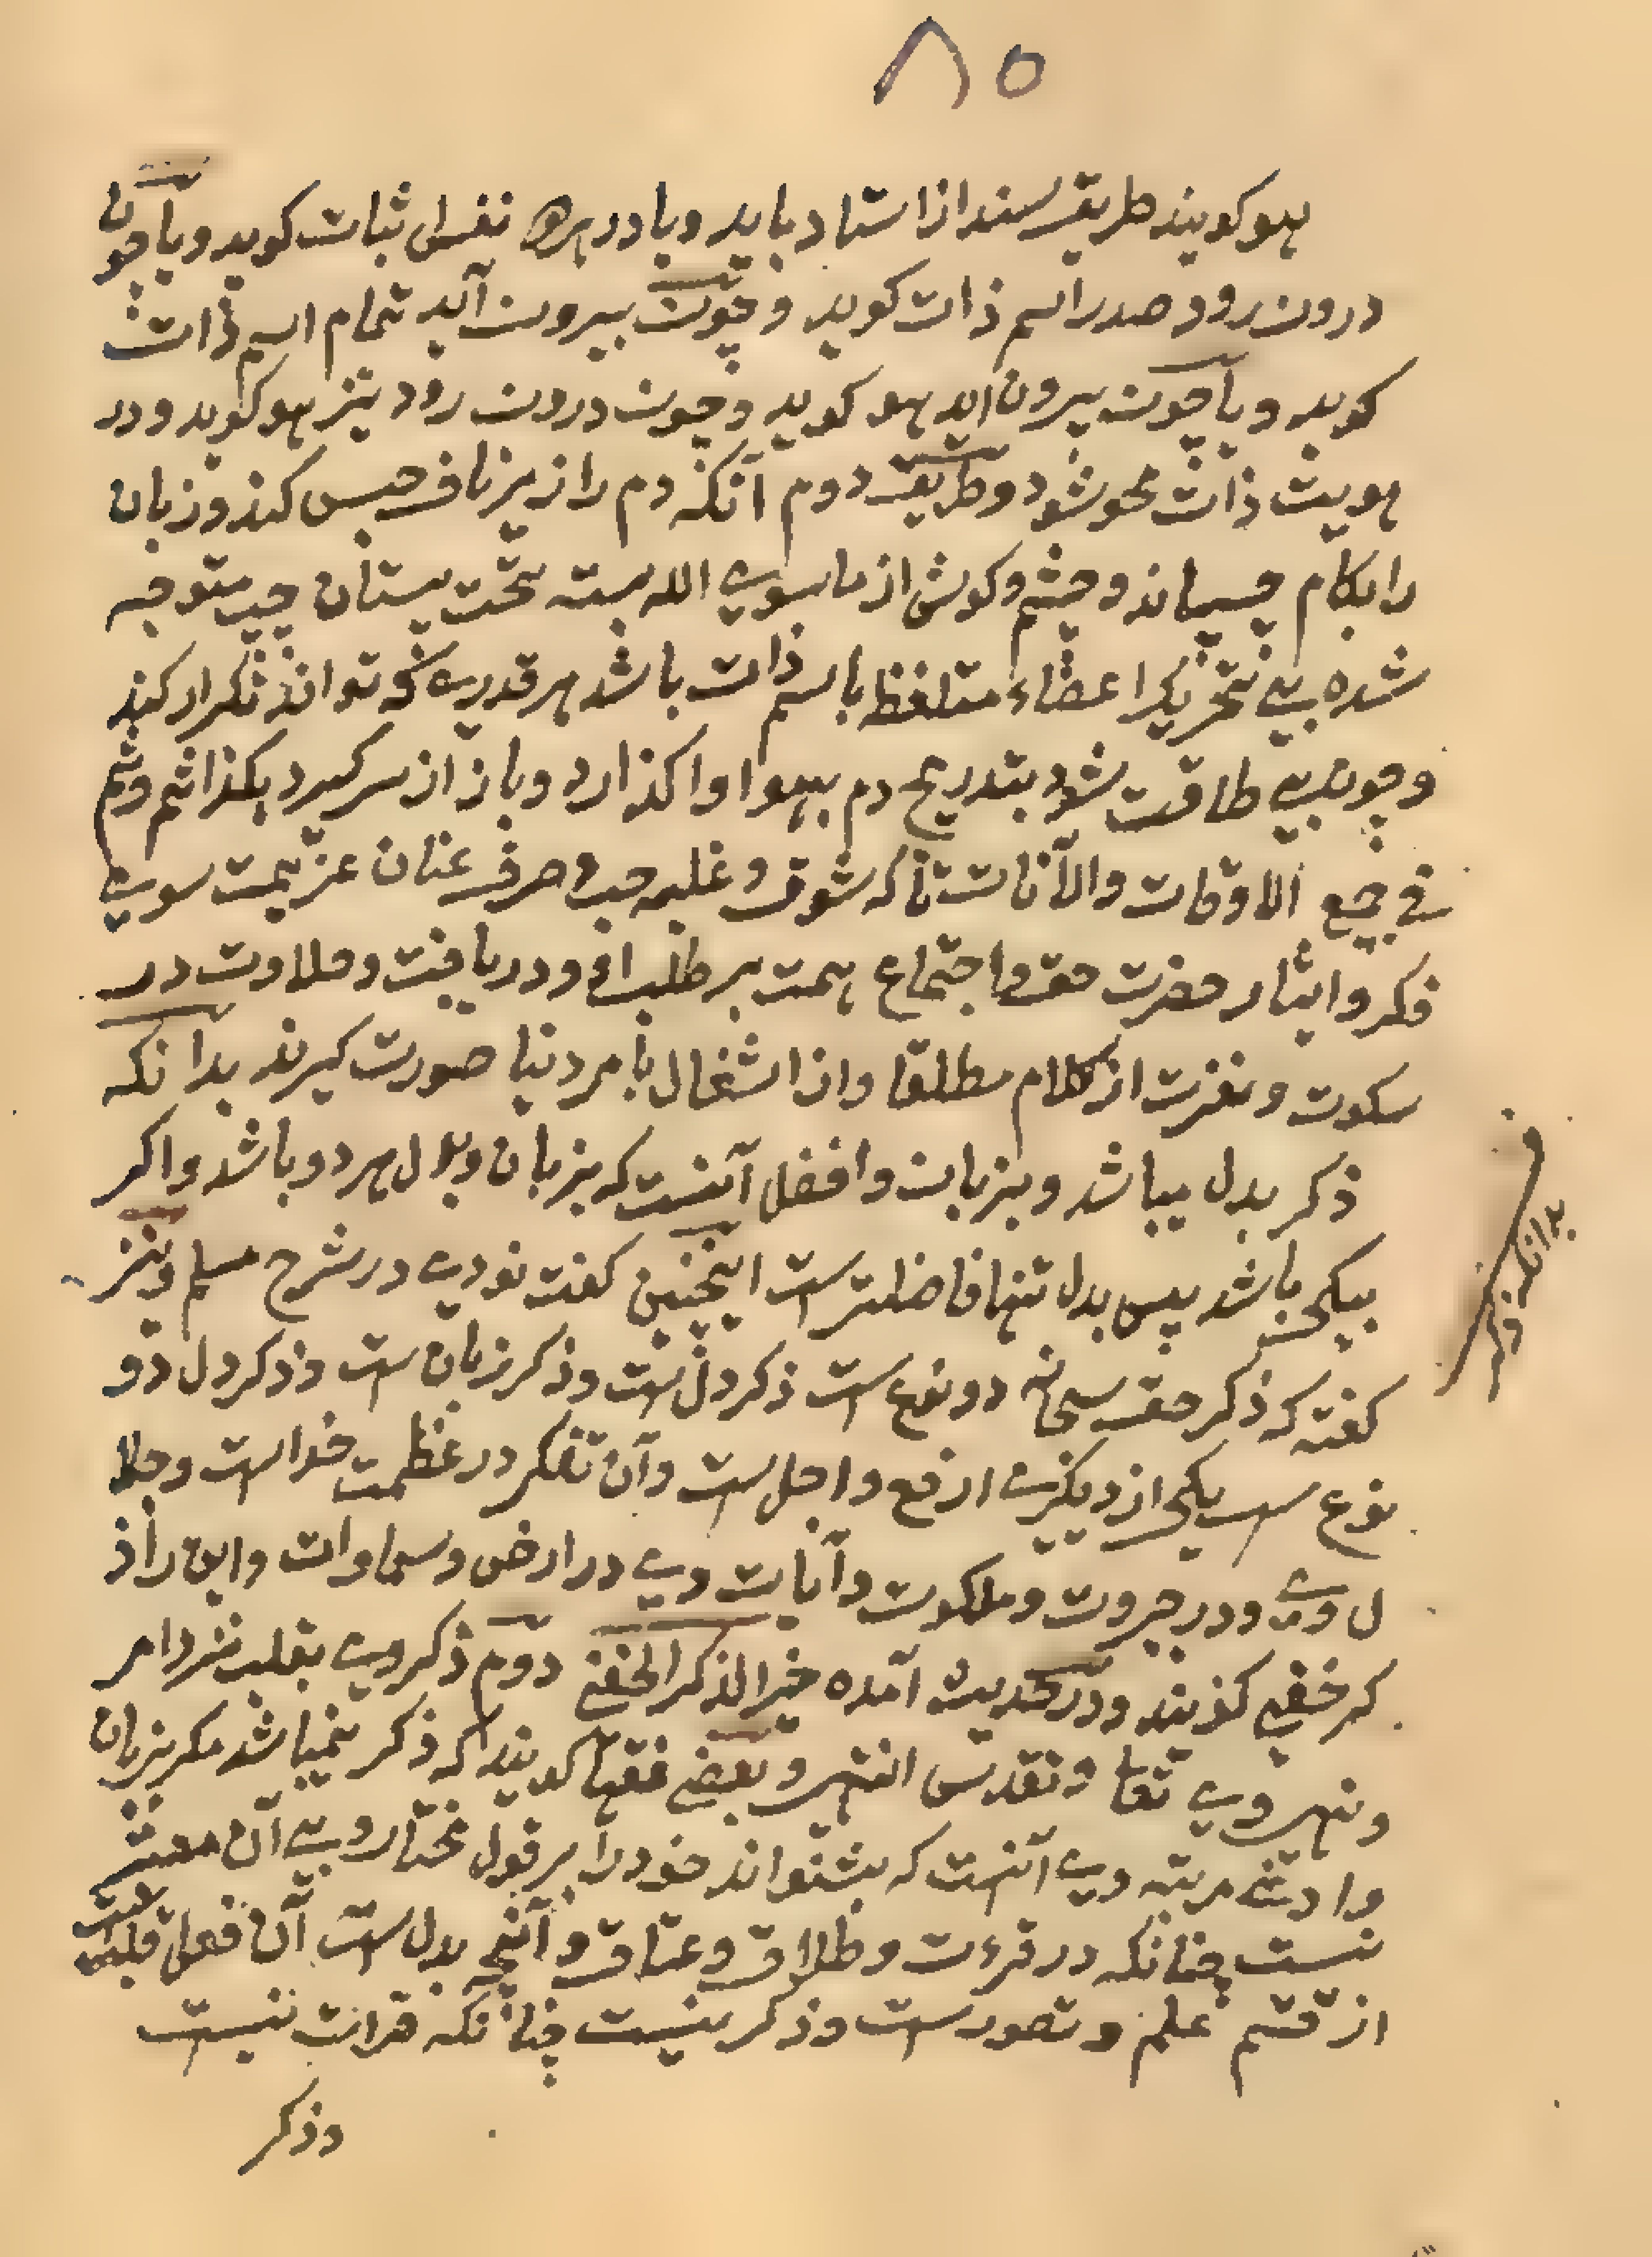 ٨٥
هو کویند طریقه سند از استاد باید و یا در هر نفس اثبات کوید و یا چون
درون رود صدر اسم ذات کوید و چون بیرون آید تمام اسم ذات
کوید و یا چون بیرون اید هو کوید و چون درون رود نیز هو کوید و در
هویت ذات محو شود و طریقه دوم آنکه دم را زیر ناف حبس کند و زبان
را بکام چسپاند و چشم و کوش از ما سوی الله بسته تحت پستان چپ متوجه
شده بی تحریک اعضاء متلفظ باسم ذات باشد هر قدری که تواند تکرار کند
و چون بی طاقت شود بتدریج دم بهوا وا کذارد و باز از سر کیرد هکذا ثم و ثم
فی جمیع الاوقات والآنات تا که شوق و غلبه حب و صرف عنان عزیمت سوی
فکر و ایثار حضرت حق و اجتماع همت بر طلب او و دریافت و حلاوت در
سکوت و نفرت از کلام مطلقا و از اشغال بامر دنیا صورت کیرند بدانکه
ذکر بدل میباشد و بزبان و افضل آنست که بزبان و بدل هر دو باشد و اکر
بیکی باشد پس بدل تنها فاضلتر ست اینچنین کفت نودی در شرح مسلم و نیز
کفته که ذکر حق سبحانه دو نوع ست ذکر دل ست و ذکر زبان ست و ذکر دل دو
نوع ست یکی از دیکری ارفع و اجل ست و آن تفکر در عظمت خداست و جلا
ل وی و در جبروت و ملکوت و آیات وی در ارض و سماوات و این را ذ
کر خفی کویند و در حدیث آمده خیر الذکر الخفی دوم ذکر وی بقلب نزد امر
و نهی وی تعا و تقدس انتهی و بعضی فقها کویند که ذکر نمیباشد مکر بزبان
و ادنی مرتبه وی آنست که بشنواند خود را بر قول مختار و بی آن معتبر
نیست چنانکه در قرءت و طلاق و عتاق و آنچه بدل ست آن فعل قلب ست
از قسم علم و تصور ست و ذکر نیست چنانکه قرائت نیست
و ذکر
بدانکه ذکر